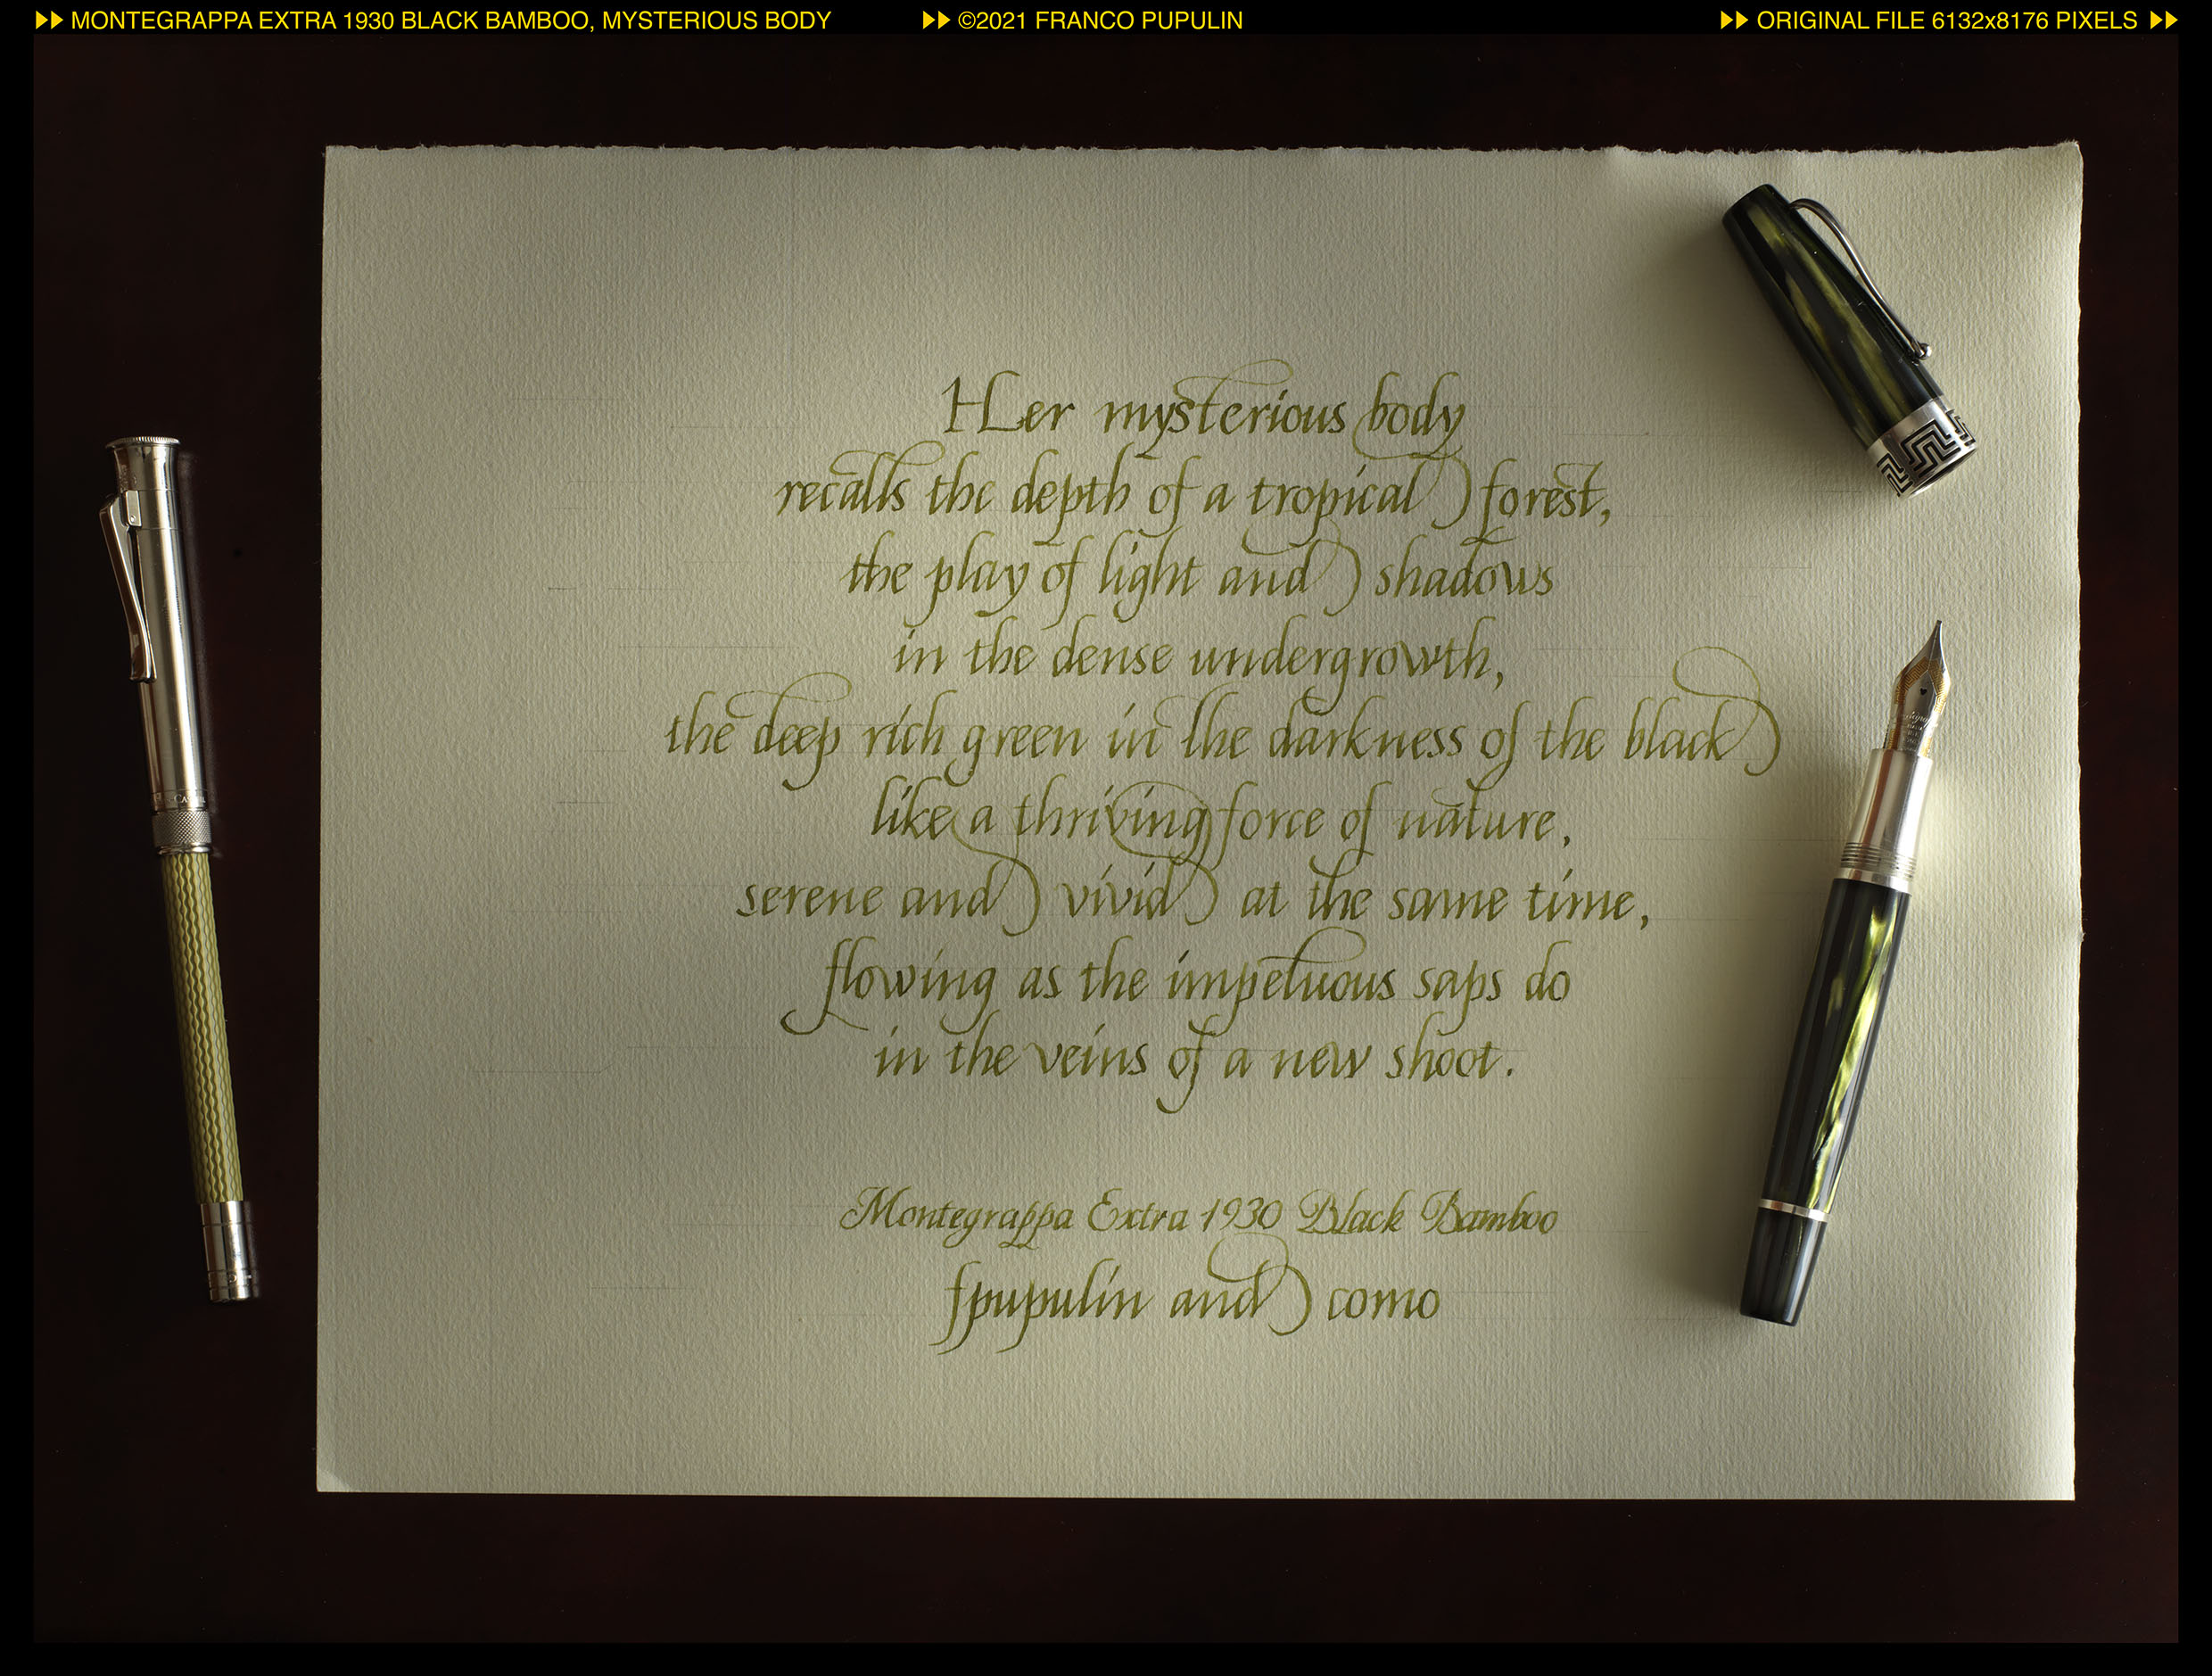 MONTEGRAPPA EXTRA 1930 BLACK BAMBOO, MYSTERIOUS BODY
©2021 FRANCO PUPULIN
ORIGINAL FILE 6132x8176 PIXELS
Her mysterious body
recalls the depth of a tropical forest,
the play of light and shadows
in the dense undergrowth,
the deep rich green in the darkness of the black
like a thriving force of nature,
serene and vivid at the same time,
flowing as the impetuous saps do
in the veins of a new shoot.
Montegrappa Extra 1930 Black Bamboo
fpupulin and como